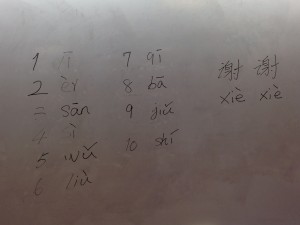 1 ī
2 èr
= sān
4 ì
5 wǔ
6 liù
7 qī
8 bā
9 jiǔ
10 shí
谢 谢
xiè xiè